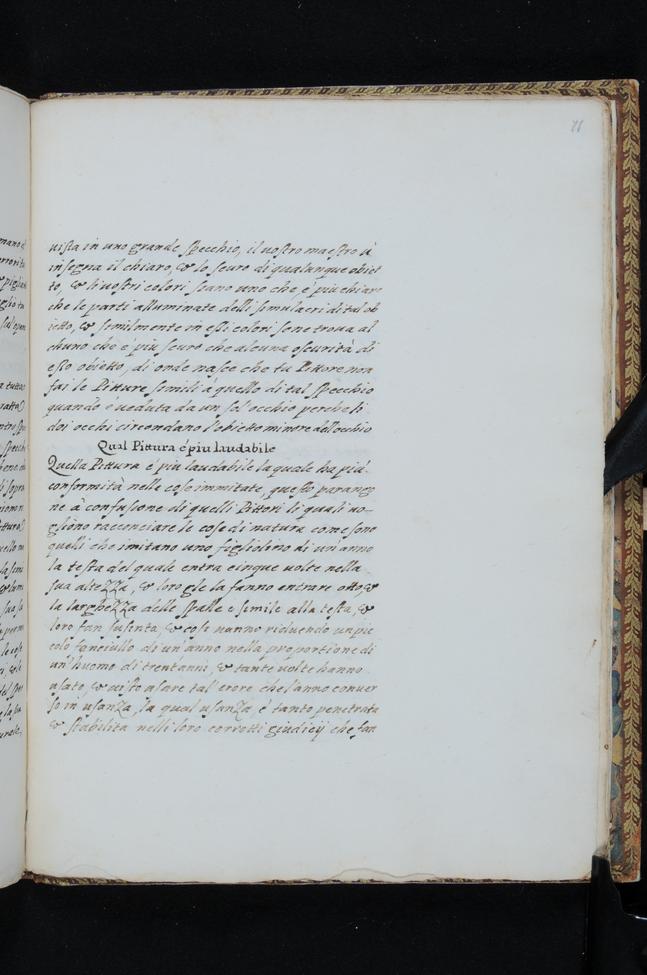 11
uista in uno grande specchio, il uostro maestro ti
insegna il chiaro, & lo scuro di qualunque obiet
to, & li uostri colori seano uno che, é piu chiaro
che le parti alluminate delli simulacri di tal ob
ietto, & similmente in essi colori se ne troua al
chuno che é piu scuro che alcuna oscurità di
esso obietto, di onde nasce che tu Pittore non
fai le Pitture simili á quello di tal specchio
quando é ueduta da un sol' occhio perche li
doi occhi circondano l'obietto minore dell'occhio
Qual Pittura é piu laudabile
Quella Pittura é piu laudabile la quale ha piú
conformità nelle cose immitate, questo parango
ne à confusione di quelli Pittori li quali uo-
gliono racconciare le cose di natura come sono
quelli che imitano uno figliolino di un anno
la testa del quale entra cinque uolte nella
sua altezza, & loro gle la fanno entrare otto, &
la larghezza delle spalle e simile alla testa, &
loro fan, & cosi uanno riduendo un pic
colo fanciullo di un anno nella proportione di
un' huomo di trent'anni, & tante uolte hanno
usato, & uisto usare tal' erore che l'anno conuer
so in usanza, la qual usanza é tanto penetrata
& stabilita nelli loro corrotti giudicij che fan